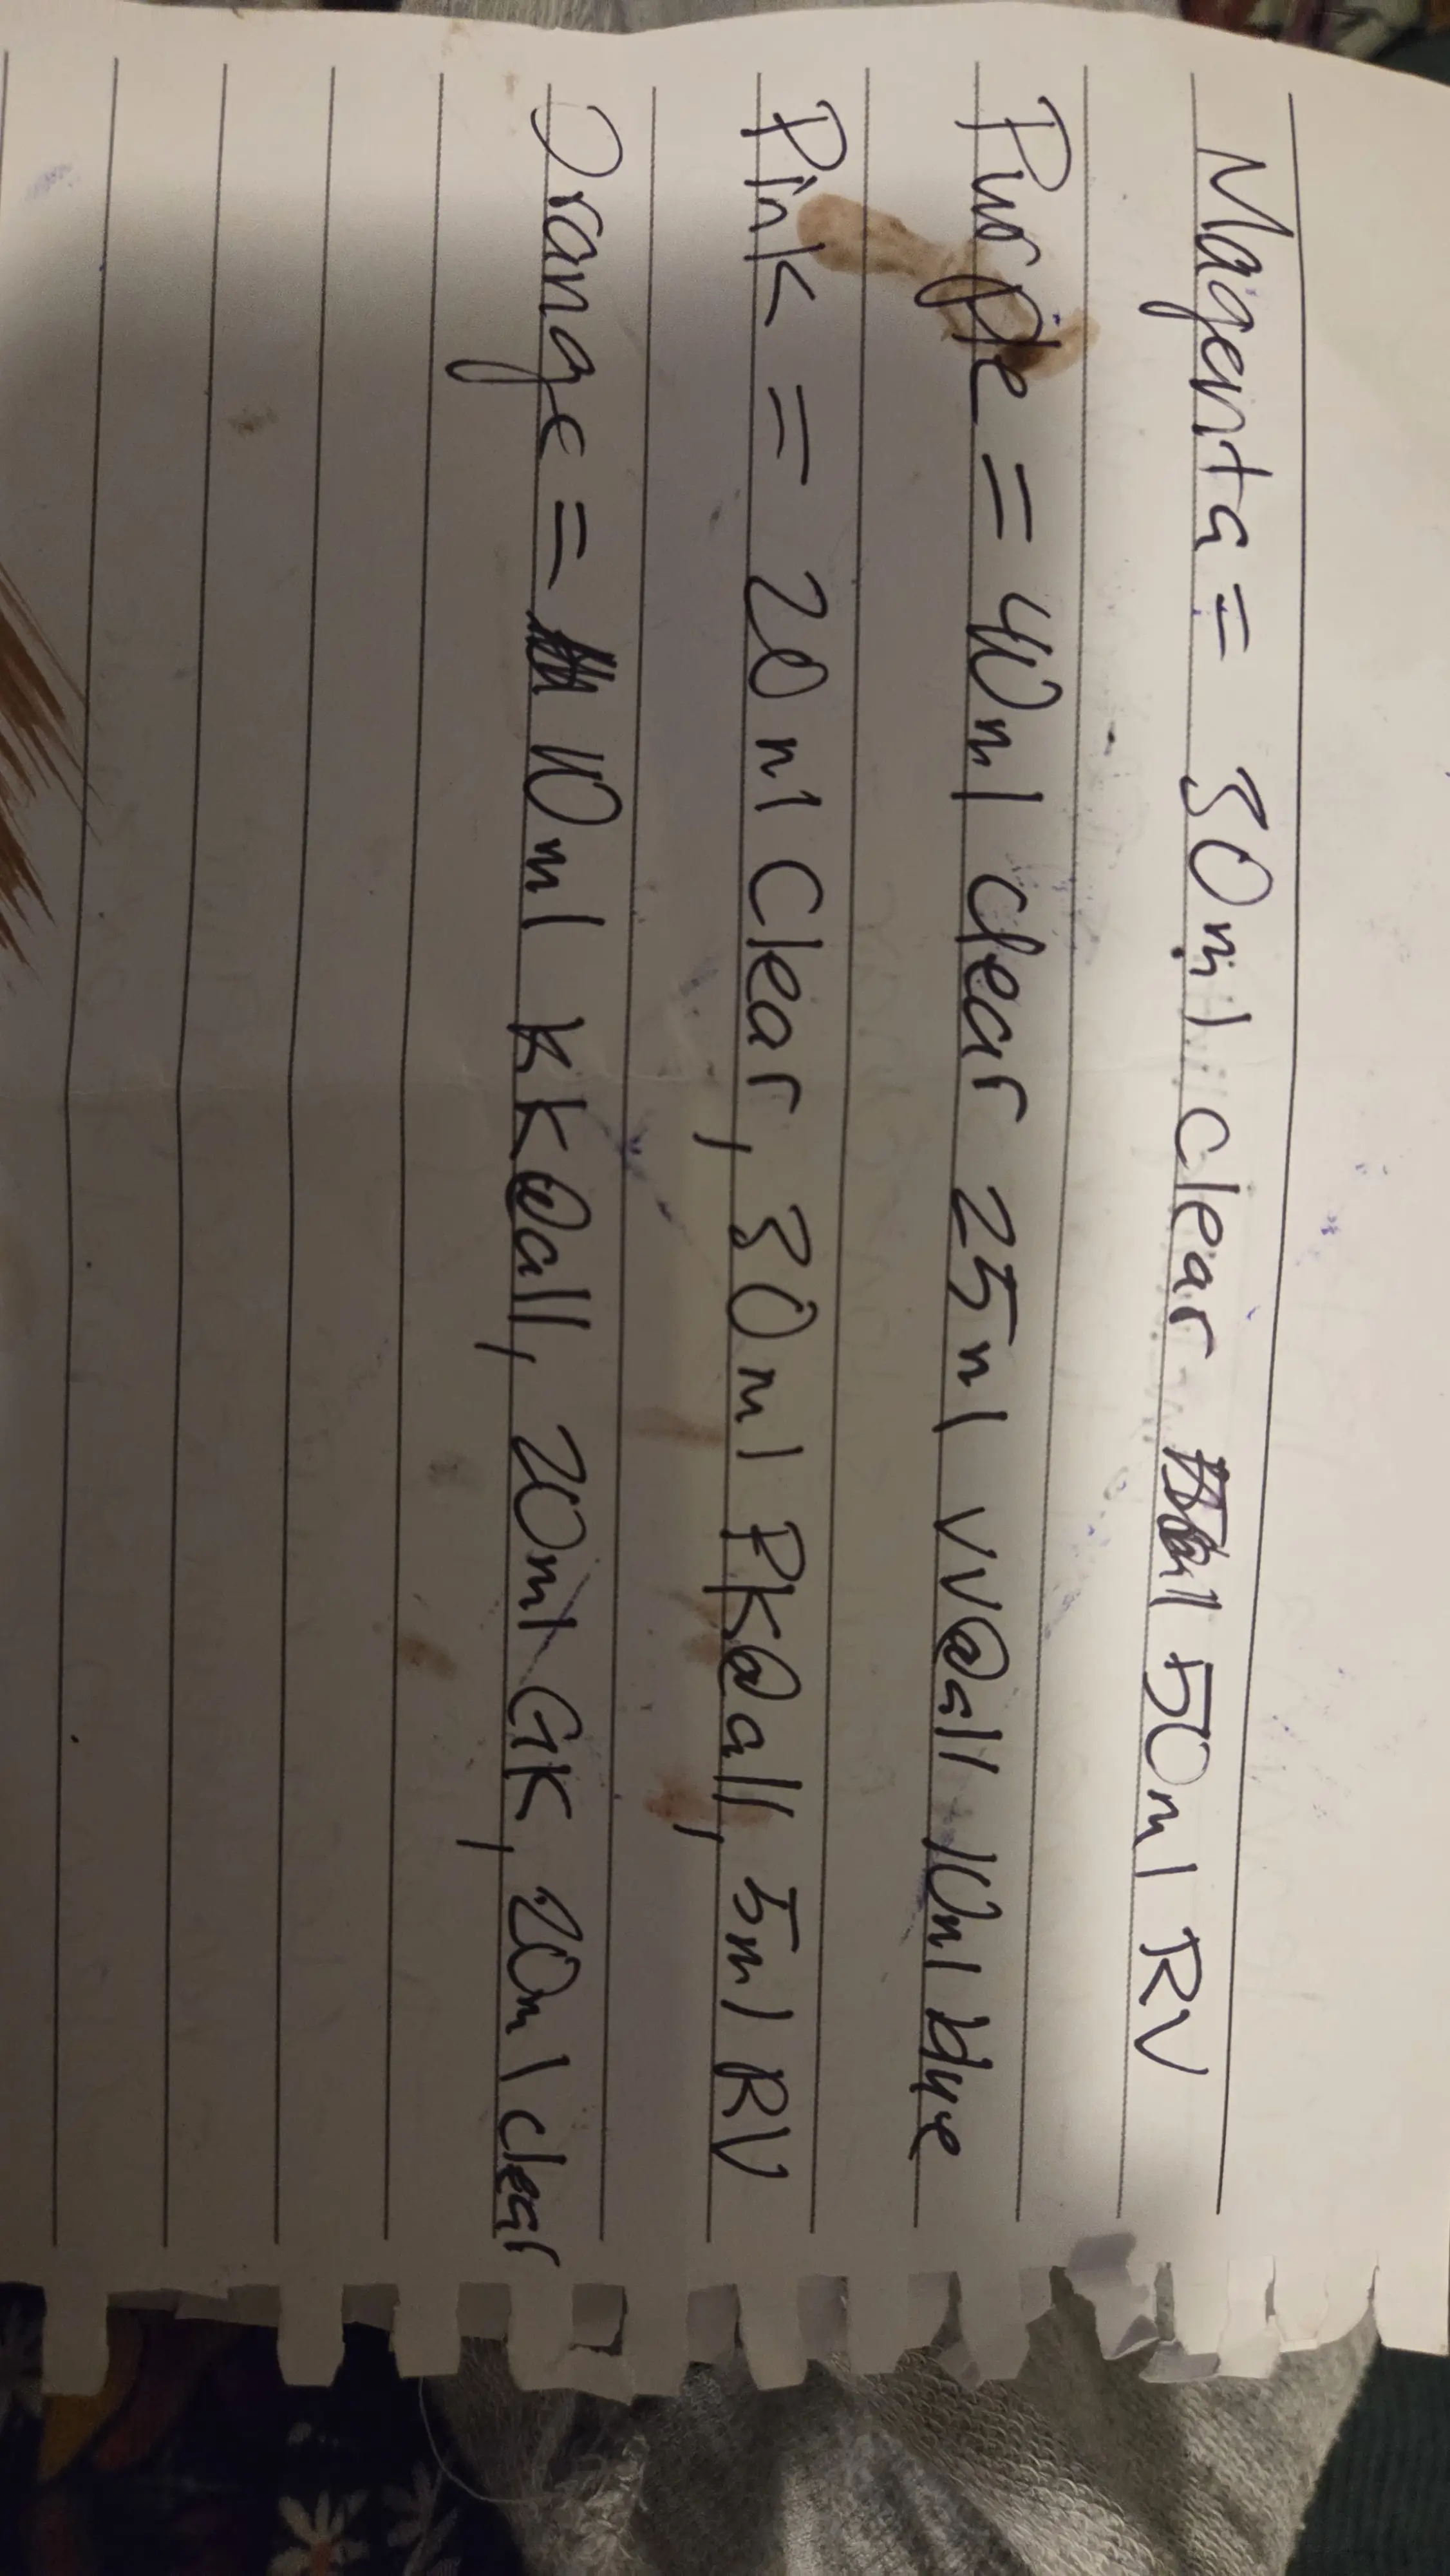 Magenta = 30ml clear 50ml RV
Purple = 40ml clear 25ml VV@all 10ml blue
Pink = 20ml clear, 30ml PK@all, 5ml RV
Orange = 10ml KK@all, 20ml GK, 20ml clear